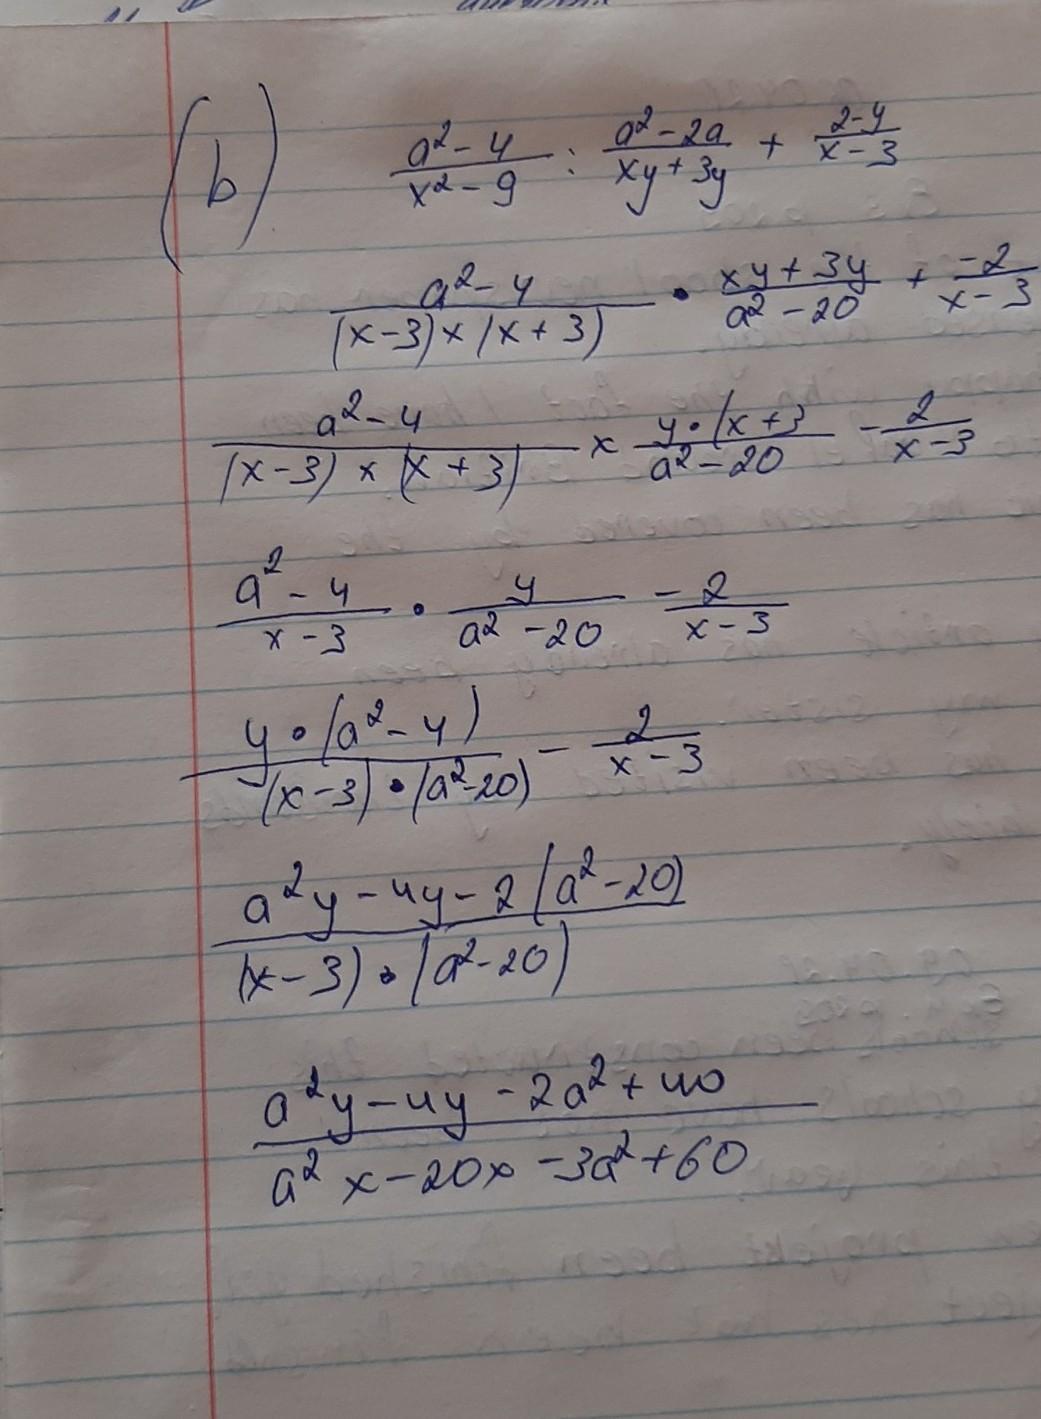 (b) (a² - 4)/(x² - 9) : (a² - 2a)/(xy + 3y) + (2 - y)/(x - 3)
(a² - 4)/((x - 3) × (x + 3)) • (xy + 3y)/(a² - 20) + (-2)/(x - 3)
(a² - 4)/((x - 3) × (x + 3)) × (y • (x + 3)/(a² - 20) - 2/(x - 3)
(a² - 4)/(x - 3) • y/(a² - 20) - 2/(x - 3)
(y • (a² - 4))/((x - 3) • (a² - 20)) - 2/(x - 3)
(a²y - 4y - 2(a² - 20))/((x - 3) • (a² - 20))
(a²y - 4y - 2a² + 40)/(a²x - 20x - 3a² + 60)